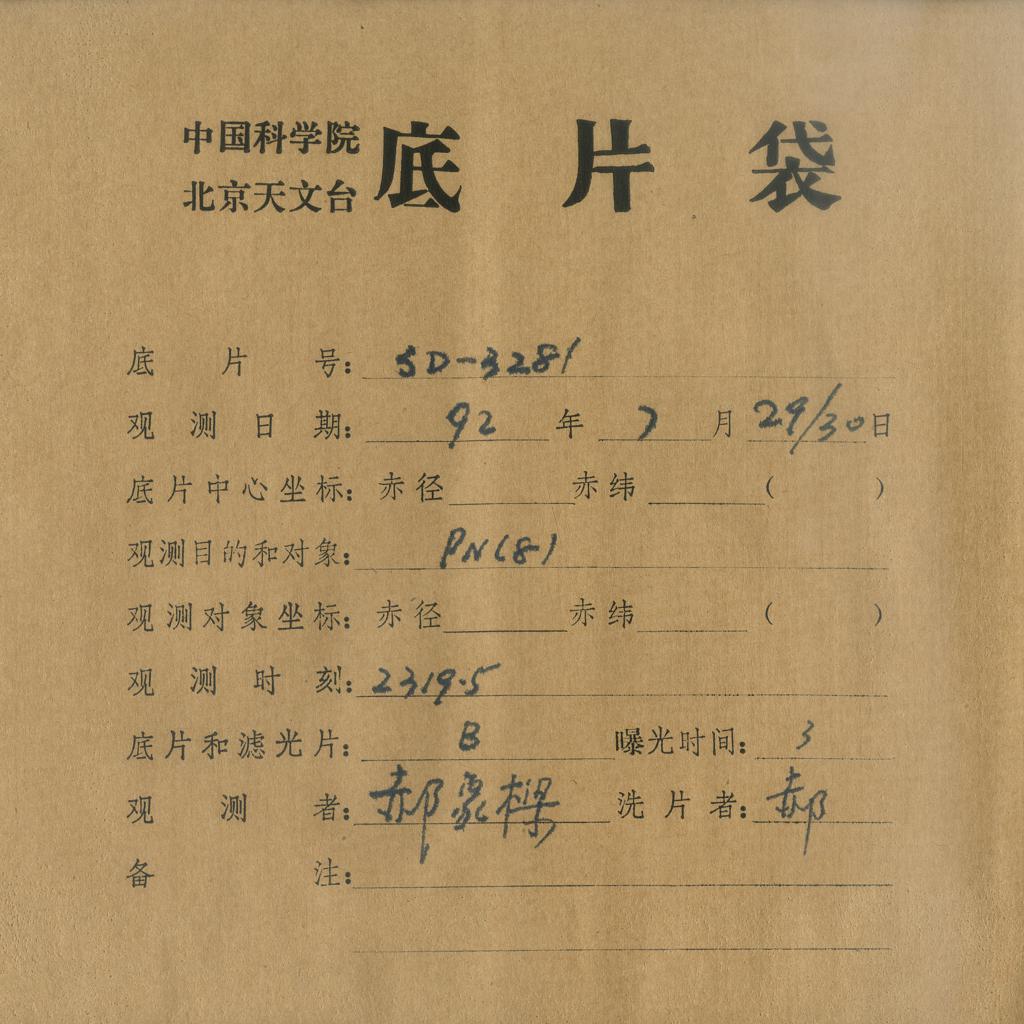 中国科学院
北京天文台
底片袋
底片号：SD-3281
观测日期：92年7月29/30日
底片中心坐标：赤径 赤纬 （ ）
观测目的和对象：PN(8)
观测对象坐标：赤径 赤纬 （ ）
观测时刻：2319.5
底片和滤光片：B 曝光时间：3
观测者：郝象樑 洗片者：郝
备注：